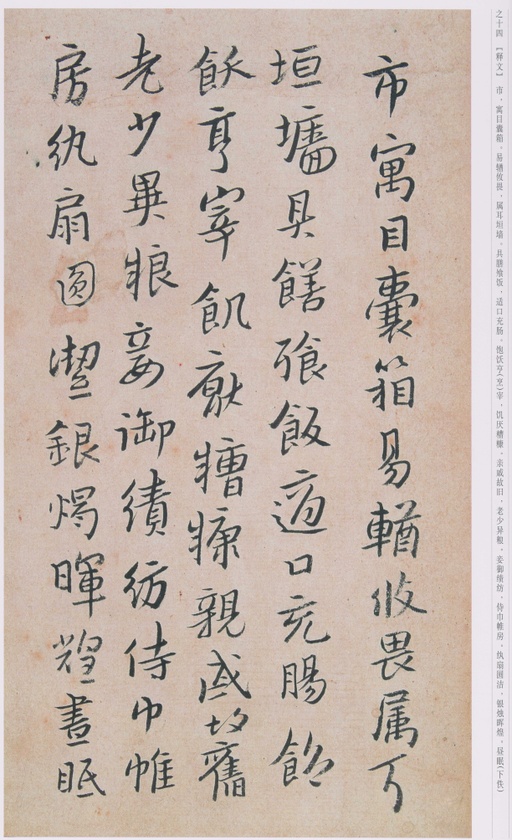 市寓目囊箱易輶攸畏属耳
垣墻具饍飡飯適口充腸飽
飫亨宰飢猒糟糠親戚故舊
老少異粮妾御績紡侍巾帷
房紈扇圓潔銀燭暉煌晝眠
之十四 【释文】 市，寓目囊箱。易輶攸畏，属耳垣墙。具膳飧饭，适口充肠。饱饫亨（烹）宰，饥厌糟糠。亲戚故旧，老少异粮。妾御绩纺，侍巾帷房。纨扇圆洁，银烛晖煌。昼眠（下佚）